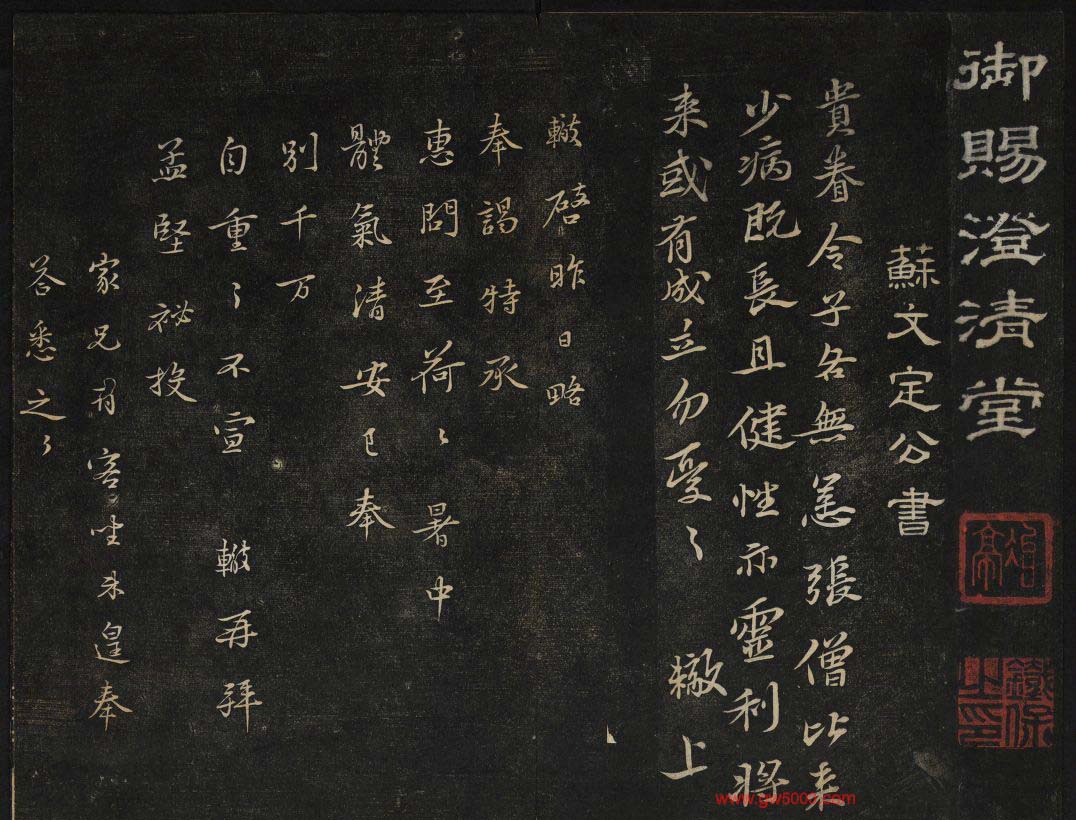 御賜澄清堂
蘇文定公書
貴眷令子各無恙張僧比来
少病既長且健性亦靈利將
来或有成立勿憂〻 轍上
轍啓昨日略
奉謁特承
惠問至荷〻暑中
體氣清安已奉
别千万
自重〻不宣 轍再拜
孟堅祕挍
家兄有客坐未遑奉
答悉之〻
鐵保之印